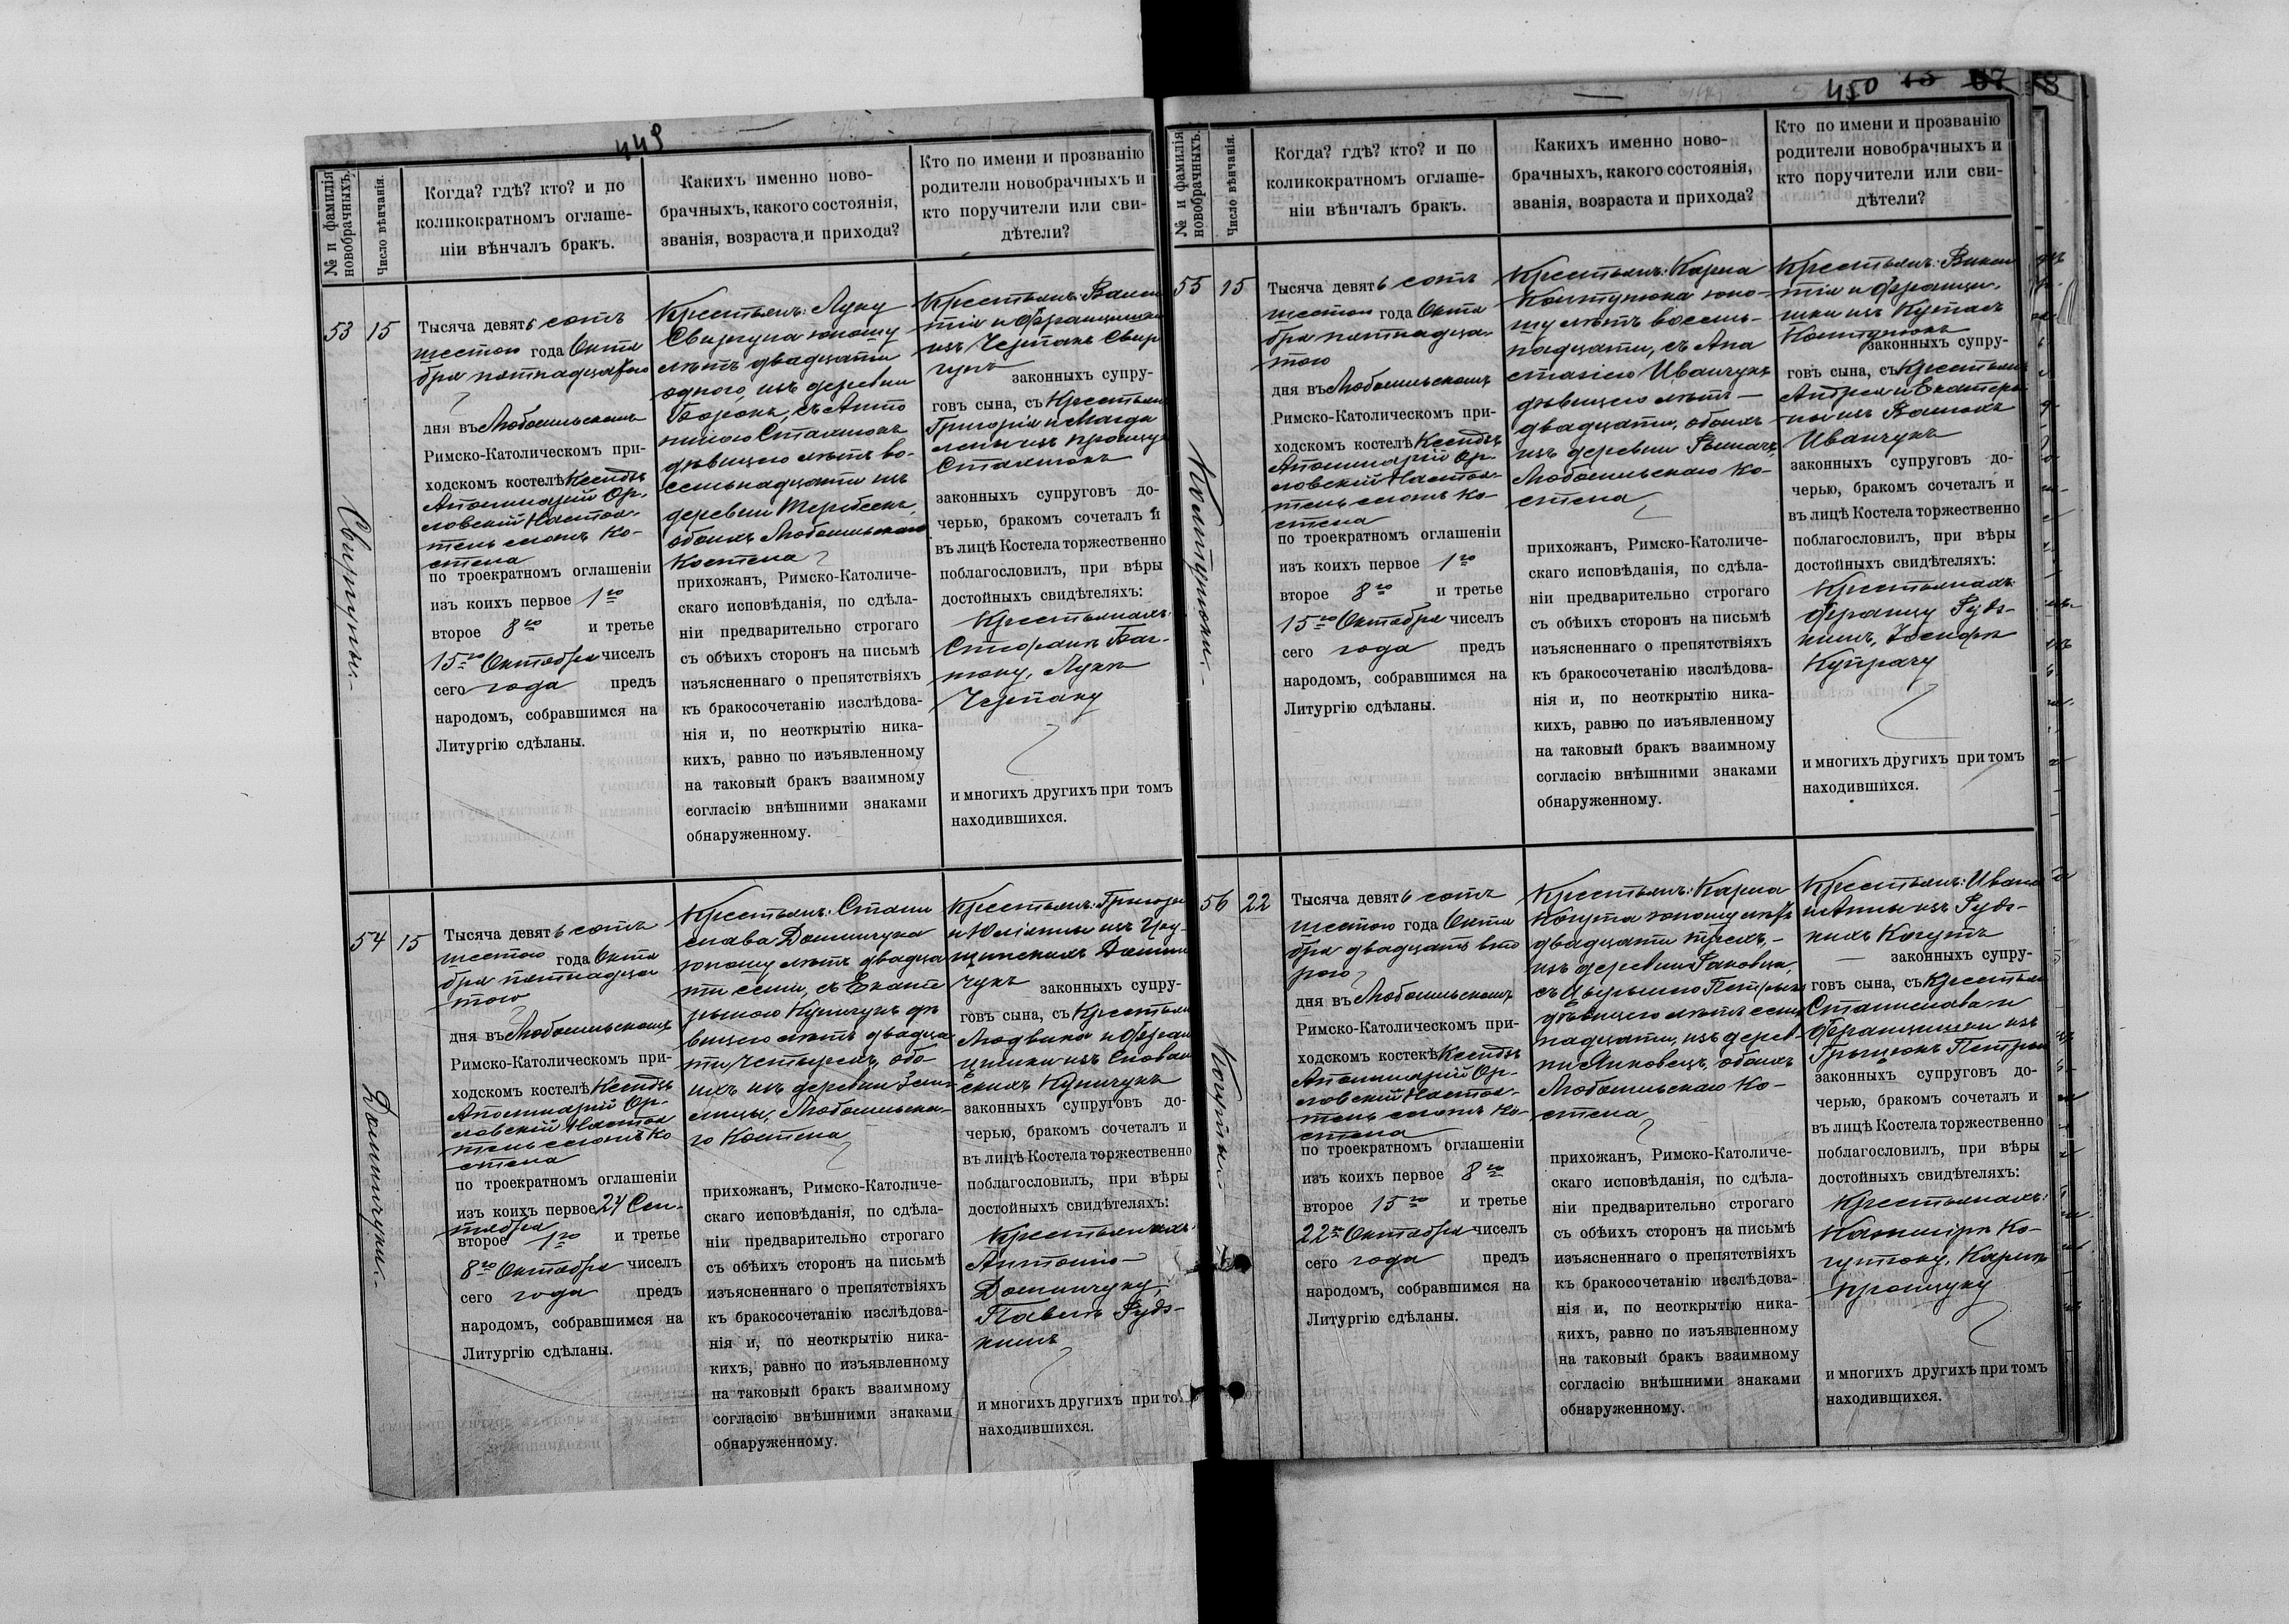 449
№ и фамилія новобрачныхъ.
Число вѣнчанія.
Когда? гдѣ? кто? и по
коликократномъ оглаше-
ніи вѣнчалъ бракъ.
Какихъ именно ново-
брачныхъ, какого состоянія,
званія, возраста и прихода?
Кто по имени и прозванію
родители новобрачныхъ и
кто поручители или сви-
дѣтели?
53
15
Тысяча девять сотъ
шестого года Октя
бря пятнадцатого
дня въ Любашельскомъ
Римско-Католическомъ при-
ходскомъ костелѣ Ксендзъ
Аполинарій Ор-
ловскій Настоя-
тель сего Ко-
стела
по троекратномъ оглашеніи
изъ коихъ первое 1го
второе 8го и третье
15го Октября чиселъ
сего года предъ
народомъ, собравшимся на
Литургію сдѣланы.
Крестьянъ: Луку
юношу
лѣтъ двадцати
одного, изъ деревни
съ Анто
ніною
дѣвицею лѣтъ во-
семьнадцати изъ
деревни
обоихъ
Костела
прихожанъ, Римско-Католиче-
скаго исповѣданія, по сдѣла-
ніи предварительно строгаго
съ обѣихъ сторонъ на письмѣ
изъясненнаго о препятствіяхъ
къ бракосочетанію изслѣдова-
нія и, по неоткрытію ника-
кихъ, равно по изъявленному
на таковый бракъ взаимному
согласію внѣшними знаками
обнаруженному.
Крестьянъ: Вален
тія и Францишки
изъ
законныхъ супру-
говъ сына, съ Крестьянъ
Григорія и Магда
лены изъ
законныхъ супруговъ до-
черью, бракомъ сочеталъ и
въ лицѣ Костела торжественно
поблагословилъ, при вѣры
достойныхъ свидѣтеляхъ:
Крестьянахъ:
Стефанѣ
Лукѣ
и многихъ другихъ при томъ
находившихся.
54
15
Доминчуки.
Тысяча девять сотъ
шестого года Октя
бря пятнадца
того
дня въ
Римско-Католическомъ при-
ходскомъ костелѣ Ксендзъ
Аполинарій Ор-
ловскій Настоя
тель сего Ко
стела
по троекратномъ оглашеніи
изъ коихъ первое 24 Сен-
тября
второе 1го и третье
8го Октября чиселъ
сего года предъ
народомъ, собравшимся на
Литургію сдѣланы.
Крестьянъ: Стани
слава Доминчука
юношу лѣтъ двадца
ти семи, съ Екате
риною дѣ
вицею лѣтъ двадца
ти четырехъ, обо-
ихъ изъ деревни Зем-
лицы,
го Костела
прихожанъ, Римско-Католиче-
скаго исповѣданія, по сдѣла-
ніи предварительно строгаго
съ обѣихъ сторонъ на письмѣ
изъясненнаго о препятствіяхъ
къ бракосочетанію изслѣдова-
нія и, по неоткрытію ника-
кихъ, равно по изъявленному
на таковый бракъ взаимному
согласію внѣшними знаками
обнаруженному.
Крестьянъ:
и Юліанны изъ
Домин
чукъ законныхъ супру-
говъ сына, съ Крестьян
Людвика и Фран
цишки изъ
законныхъ супруговъ до-
черью, бракомъ сочеталъ и
въ лицѣ Костела торжественно
поблагословилъ, при вѣры
достойныхъ свидѣтеляхъ:
Крестьянахъ:
Антоніѣ
Доминчуку,
Павелъ Рудз-
кимъ
и многихъ другихъ при то
находившихся.
450
№ и фамилія новобрачныхъ.
Число вѣнчанія.
Когда? гдѣ? кто? и по
коликократномъ оглаше-
ніи вѣнчалъ бракъ.
Какихъ именно ново-
брачныхъ, какого состоянія,
званія, возраста и прихода?
Кто по имени и прозванію
родители новобрачныхъ и
кто поручители или сви-
дѣтели?
55
15
Тысяча девять сотъ
шестого года Октя
бря пятнадца-
того
дня въ
Римско-Католическомъ при-
ходскомъ костелѣ Ксендзъ
Аполинарій Ор-
ловскій Настоя-
тель сего Ко-
стела
по троекратномъ оглашеніи
изъ коихъ первое 1го
второе 8го и третье
15го Октября чиселъ
сего года предъ
народомъ, собравшимся на
Литургію сдѣланы.
Крестьянъ: Карла
юно-
шу лѣтъ восемь-
надцати, съ Ана
стазіею Иванчукъ
дѣвицею лѣтъ
двадцати, обоихъ
изъ деревни
Ко-
стела
прихожанъ, Римско-Католиче-
скаго исповѣданія, по сдѣла-
ніи предварительно строгаго
съ обѣихъ сторонъ на письмѣ
изъясненнаго о препятствіяхъ
къ бракосочетанію изслѣдова-
нія и, по неоткрытію ника-
кихъ, равно по изъявленному
на таковый бракъ взаимному
согласію внѣшними знаками
обнаруженному.
Крестьянъ: Викен
тія и Францы-
шки изъ
законныхъ супру-
говъ сына, съ Крестьянъ
Андрея и Екатери
ны изъ
Иванчукъ
законныхъ супруговъ до-
черью, бракомъ сочеталъ и
въ лицѣ Костела торжественно
поблагословилъ, при вѣры
достойныхъ свидѣтеляхъ:
Крестьянахъ:
Францу Рудз-
кимъ, Іосифѣ
Купрачу
и многихъ другихъ при томъ
находившихся.
56
22
Когуты.
Тысяча девять сотъ
шестого года Октя
бря двадцать вто
рого
дня въ
Римско-Католическомъ при-
ходскомъ костекѣ Ксендзъ
Аполинарій Ор-
ловскій Настоя-
тель сего Ко-
стела
по троекратномъ оглашеніи
изъ коихъ первое 8го
второе 15го и третье
22го Октября чиселъ
сего года предъ
народомъ, собравшимся на
Литургію сдѣланы.
Крестьянъ: Карла
Когута юношу лѣтъ
двадцати трехъ,
изъ деревни Раковца,
съ
дѣвицею лѣтъ семь
надцати, изъ дерев-
ни обоихъ
Ко-
стела
прихожанъ, Римско-Католиче-
скаго исповѣданія, по сдѣла-
ніи предварительно строгаго
съ обѣихъ сторонъ на письмѣ
изъясненнаго о препятствіяхъ
къ бракосочетанію изслѣдова-
нія и, по неоткрытію ника-
кихъ, равно по изъявленному
на таковый бракъ взаимному
согласію внѣшними знаками
обнаруженному.
Крестьянъ: Ивана
и Анны изъ Рудз-
кихъ Когутъ
законныхъ супру-
говъ сына, съ Крестьян
Станислава и
Францишки изъ
законныхъ супруговъ до-
черью, бракомъ сочеталъ и
въ лицѣ Костела торжественно
поблагословилъ, при вѣры
достойныхъ свидѣтеляхъ:
Крестьянахъ:
Казимірѣ Ко-
Карлѣ
и многихъ другихъ при томъ
находившихся.